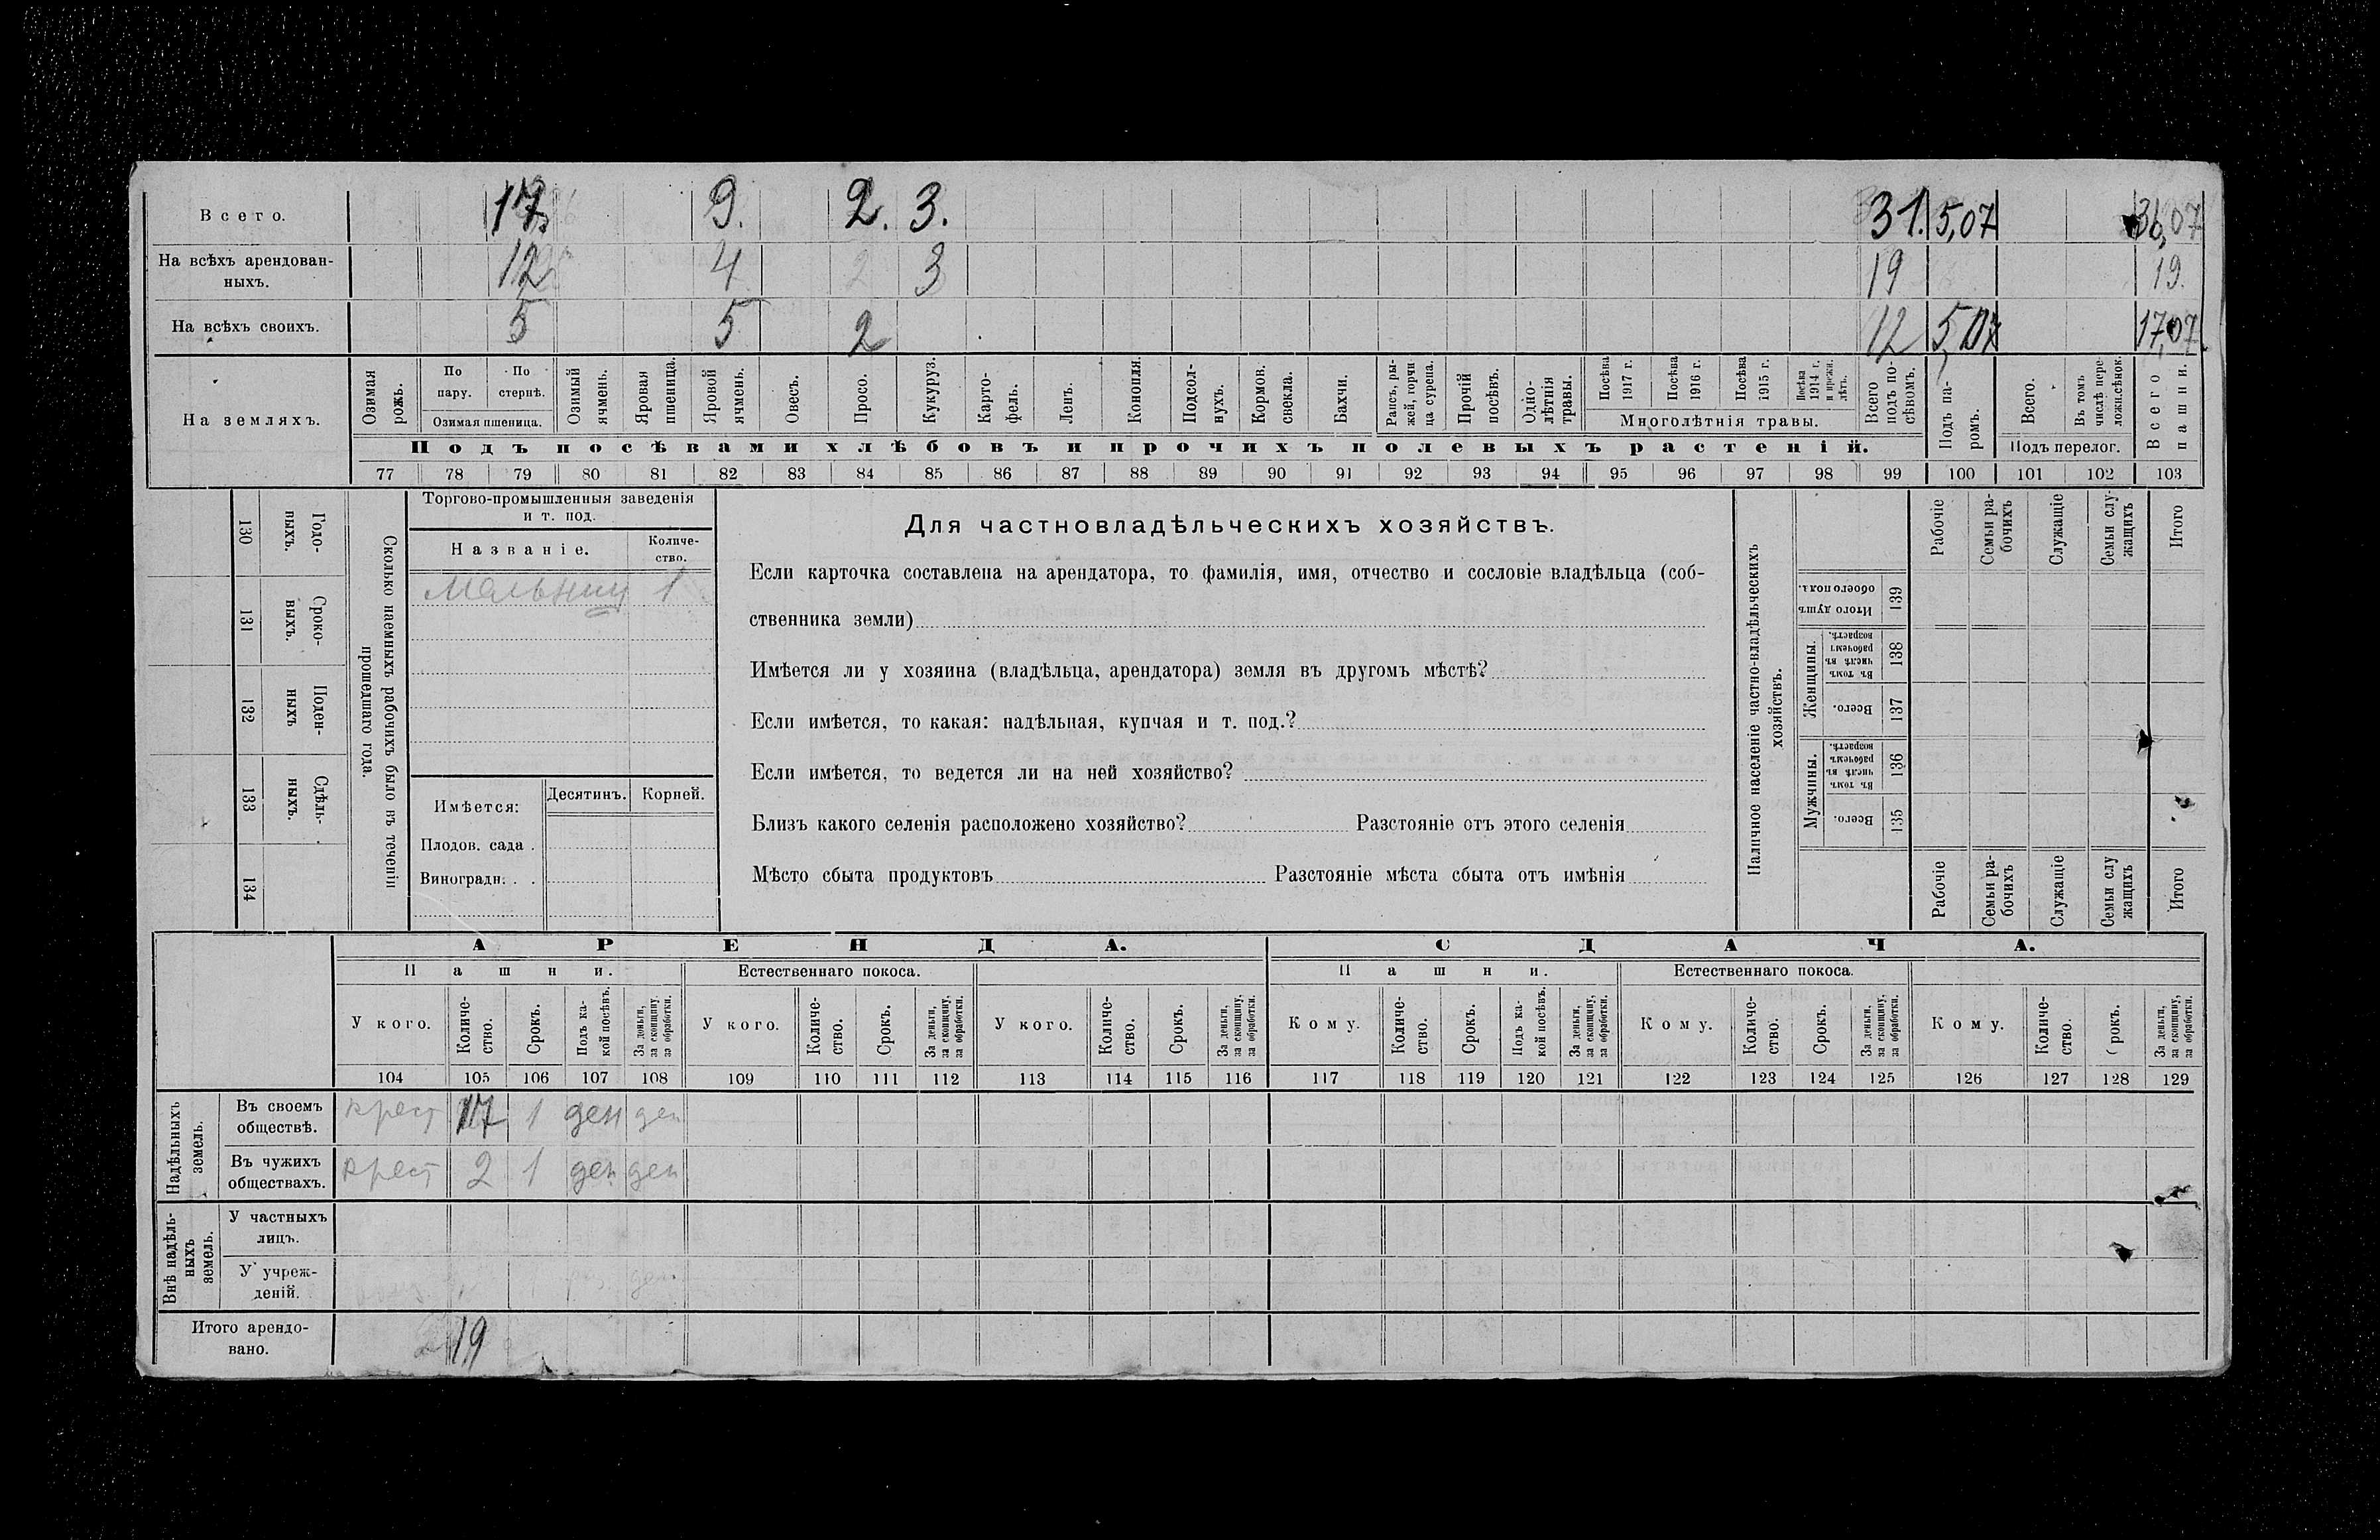 Всего. 17. 9. 2. 3. 31. 5,07 36,07
На всѣхъ арендован-
ныхъ. 12 4 3 19 19.
На всѣхъ своихъ. 5 5 2 12 5,07 17,07
На земляхъ.
Озимая рожь.
По пару.
По стернѣ.
Озимая пшеница.
Озимый ячмень.
Яровая пшеница.
Яровой ячмень.
Овесъ.
Просо.
Кукуруз.
Карто-
фель.
Ленъ.
Конопля.
Подсол-
нухъ.
Кормов. свекла.
Бахчи.
Рапсъ, ры-
жей, горчи
ца сурепа.
Прочій посѣвъ.
Одно-
лѣтнія травы.
Посѣва 1917 г.
Посѣва 1916 г.
Посѣва 1915 г.
Посѣва 1914 г. и прежн. лѣтъ.
Многолѣтнія травы.
Всего подъ по-
сѣвомъ.
Подъ па-
ромъ.
Всего.
Въ томъ числѣ пере-
ложн.сѣнок.
Подъ перелог.
Всего пашни.
Подъ посѣвами хлѣбовъ и прочихъ полевыхъ растеній.
77 78 79 80 81 82 83 84 85 86 87 88 89 90 91 92 93 94 95 96 97 98 99 100 101 102 103
130 Годо-
выхъ.
131 Сроко-
выхъ.
132 Поден-
ныхъ
133 Сдѣль-
ныхъ.
134
Сколько наемныхъ рабочихъ было въ теченіи
прошедшаго года.
Торгово-промышленныя заведенія
и т. под.
Названіе. Количе-
ство.
Мельниц 1
Имѣется: Десятинъ. Корней.
Плодов. сада .
Виноградн. . .
Для частновладѣльческихъ хозяйствъ.
Если карточка составлена на арендатора, то фамилія, имя, отчество и сословіе владѣльца (соб-
ственника земли)
Имѣется ли у хозяина (владѣльца, арендатора) земля въ другомъ мѣстѣ?
Если имѣется, то какая: надѣльная, купчая и т. под.?
Если имѣется, то ведется ли на ней хозяйство?
Близъ какого селенія расположено хозяйство? Разстояніе отъ этого селенія
Мѣсто сбыта продуктовъ Разстояніе мѣста сбыта отъ имѣнія
Наличное населеніе частно-владѣльческихъ
хозяйствъ.
Рабочіе
Семьи ра-
бочихъ
Служащіе
Семьи слу-
жащихъ
Итого
Итого душъ обоего пола. 139
Женщины.
Въ томъ числѣ въ рабочемъ возрастѣ. 138
Всего. 137
Мужчины.
Въ томъ числѣ въ рабочемъ возрастѣ. 136
Всего. 135
Рабочіе
Семьи ра-
бочихъ
Служащіе
Семьи слу
жащихъ
Итого
АРЕНДА. СДАЧА.
Пашни. Естественнаго покоса. Пашни. Естественнаго покоса.
У кого. Количе-
ство. Срокъ. Подъ ка-
кой посѣвъ. За деньги, за скопщину, за обработки.
У кого. Количе-
ство. Срокъ. За деньги, за скопщину, за обработки.
У кого. Количе-
ство. Срокъ. За деньги, за скопщину, за обработки.
Кому. Количе-
ство. Срокъ. Подъ ка-
кой посѣвъ. За деньги, за скопщину, за обработки.
Кому. Количе-
ство. Срокъ. За деньги, за скопщину, за обработки.
Кому. Количе-
ство. рокъ. За деньги, за скопщину, за обработки.
104 105 106 107 108 109 110 111 112 113 114 115 116 117 118 119 120 121 122 123 124 125 126 127 128 129
Надѣльныхъ земель.
Въ своемъ
обществѣ. крест 17 1 ден ден
Въ чужихъ
обществахъ. крест 2 1 ден ден
Внѣ надѣль-
ныхъ земель.
У частныхъ
лицъ.
У учреж-
деній. ден
Итого арендо-
вано. 19